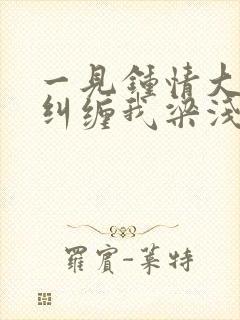 一見鍾情大
纠缠我梁淺
羅賓-萊特